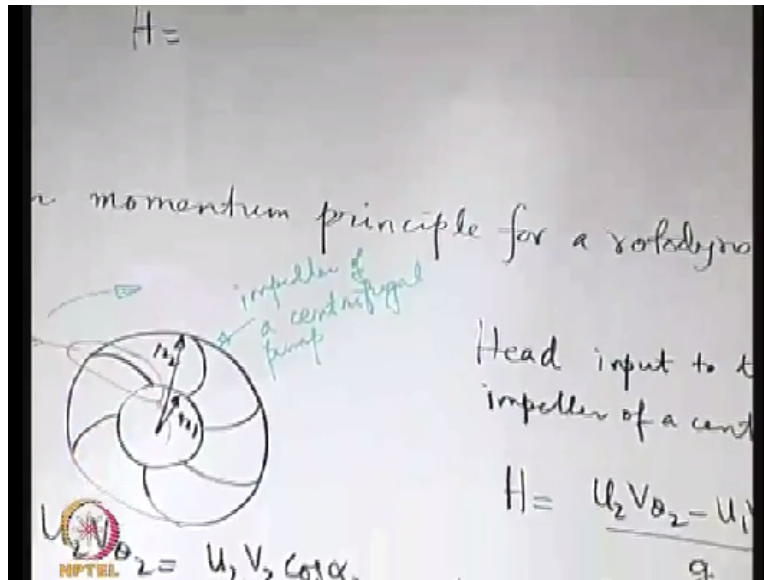 H=
momentum principle for a rotodyno
impeller of
a centrifugal
pump
r₂
r₁
Head input to t
impeller of a cent
H = U₂Vθ₂ - U₁V
g
U₂Vθ₂ = U₂V₂ cosα
NPTEL